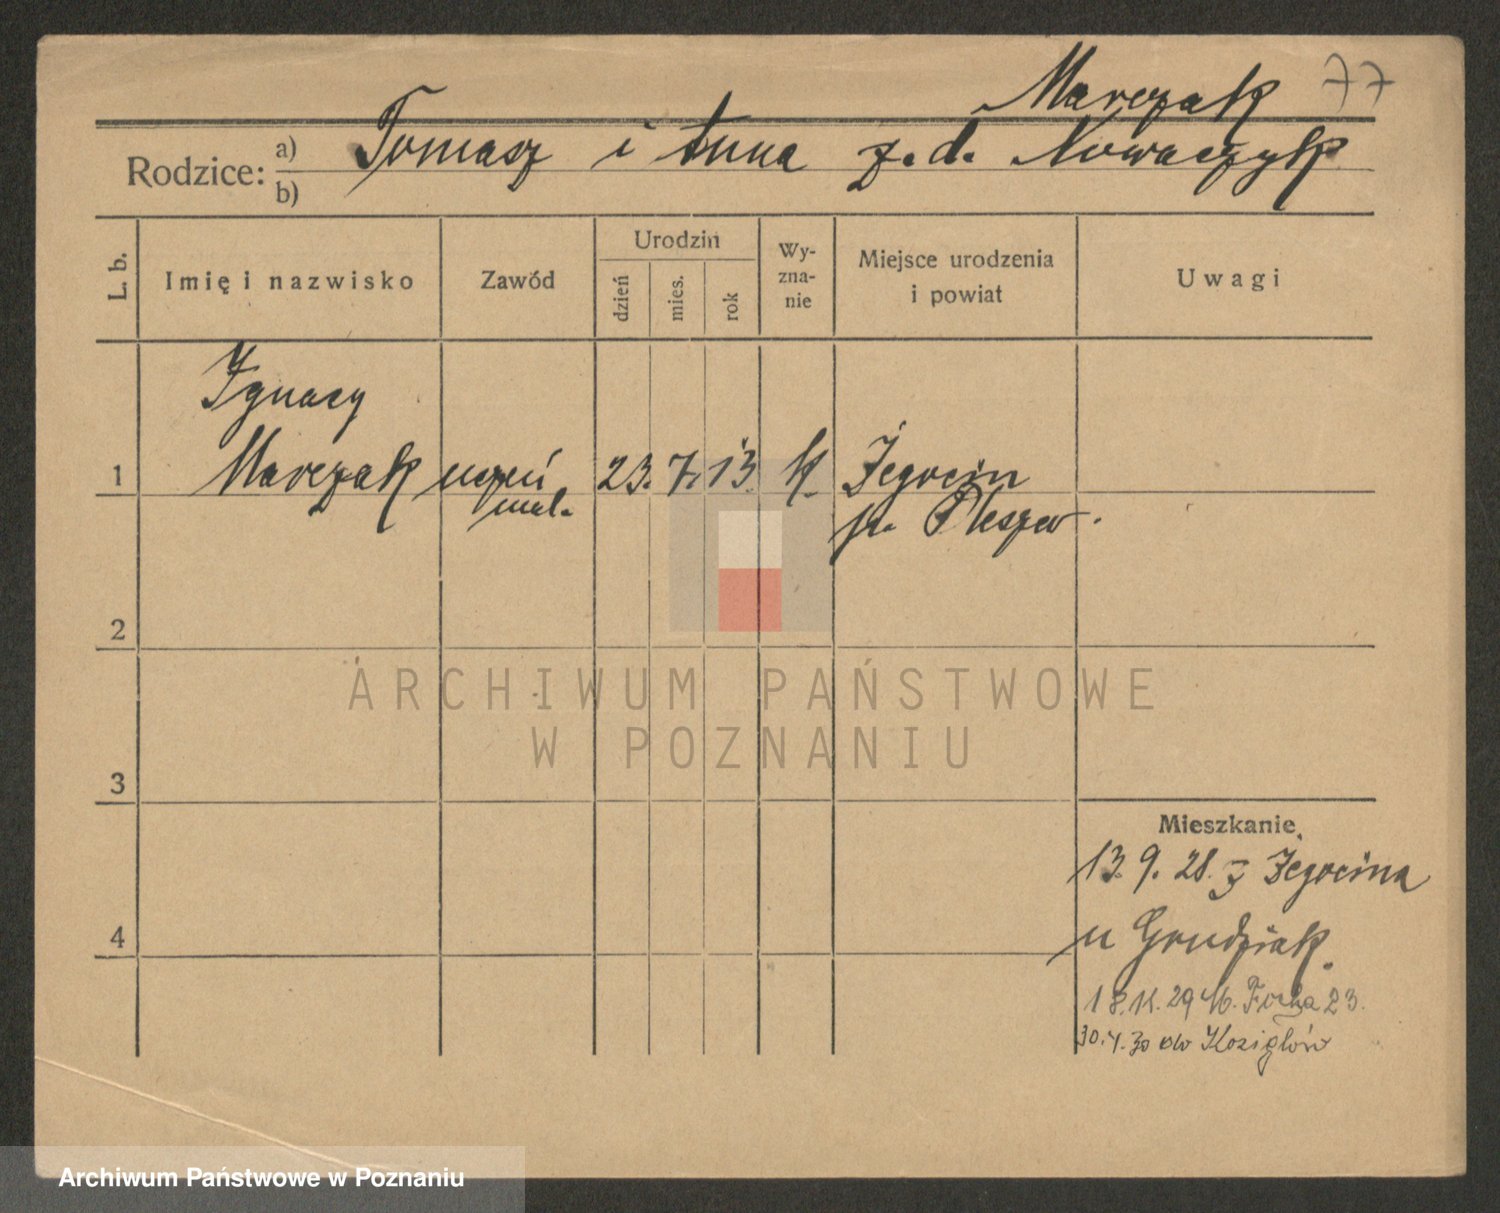 Marczak 77
Rodzice: a) b) Tomasz i Anna z. d. Nowaczyk
L. b. Imię i nazwisko Zawód Urodzin dzień mies. rok Wyznanie Miejsce urodzenia i powiat Uwagi
Ignacy
1 Marczak uczeń 23. 7. 13 k. Żegocin
mal. p. Pleszew.
2
ARCHIWUM PAŃSTWOWE
W POZNANIU
3
Mieszkanie
13. 9. 28. z Żegocina
4 u Grudziak.
18.11.29 23.
30.4.30 do Kozigłów
Archiwum Państwowe w Poznaniu